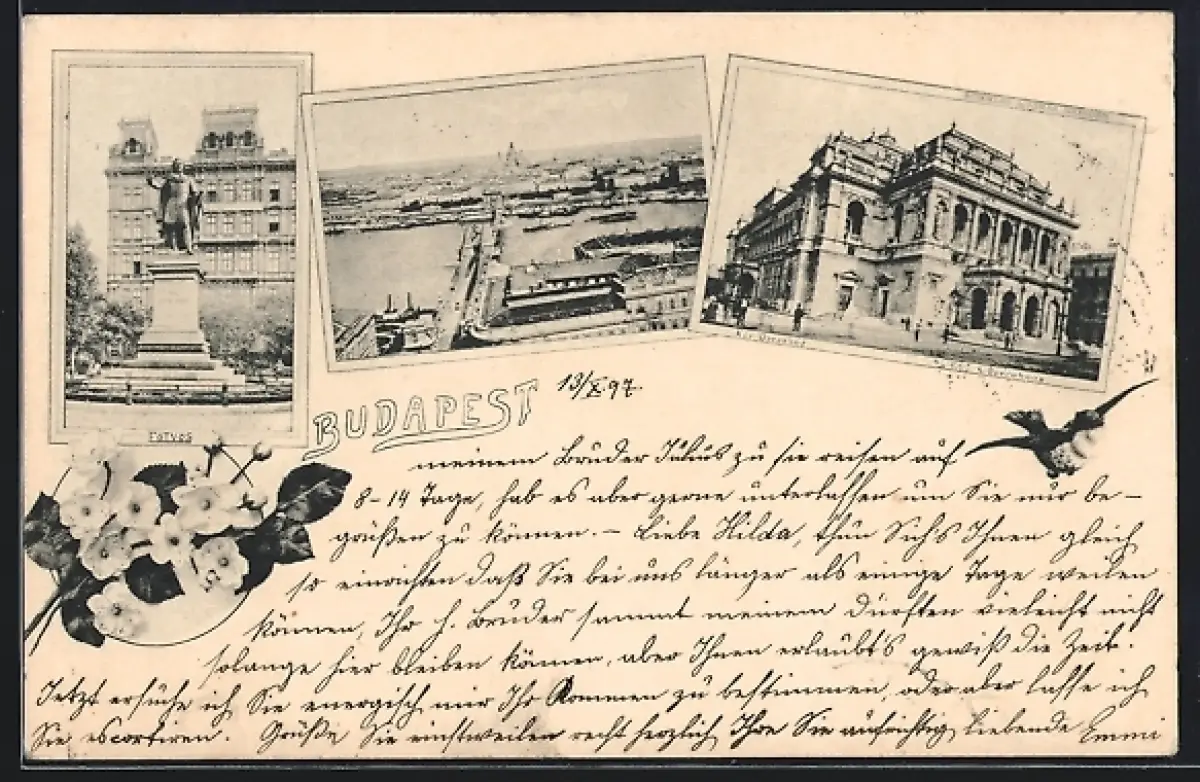 Eötvös
BUDAPEST 13/X 97.
meinem Bruder Julius zu sie reisen auf
8-14 Tage, hab es aber gerne unterlassen um Sie nur be-
grüßen zu können. - Liebe Hilda, thun Sich's Ihnen gleich
so einrichten daß Sie bei uns länger als einige Tage weilen
können, Ihr H. Bruder sammt meinem dürften vieleicht nicht
solange hier bleiben können, aber Ihnen erlaubt's gewiß die Zeit.
Jetzt ersuche ich Sie energisch mir Ihr Kommen zu bestimmen, oder aber lasse ich
Sie escortiren. Grüße Sie einstweilen recht herzlich Ihre Sie aufrichtig liebende Emmi